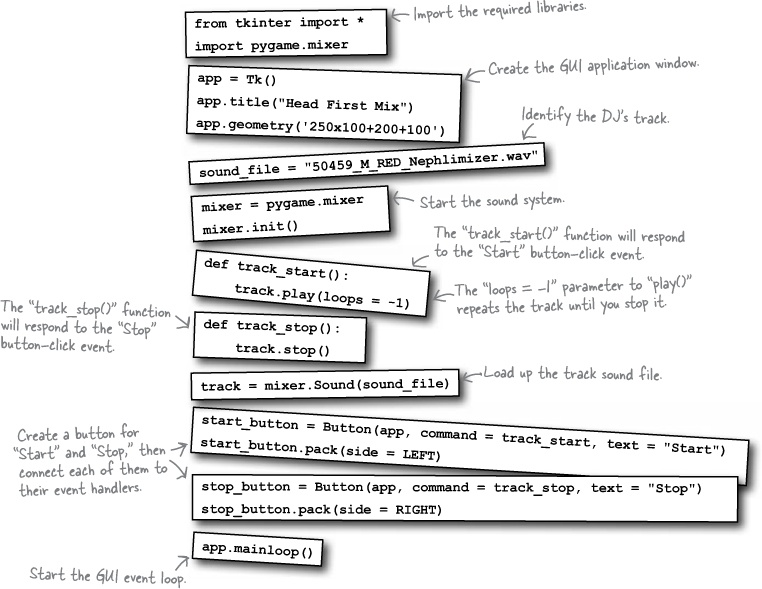 from tkinter import *
import pygame.mixer
Import the required libraries.
app = Tk()
app.title("Head First Mix")
app.geometry('250x100+200+100')
Create the GUI application window.
Identify the DJ's track.
sound_file = "50459_M_RED_Nephlimizer.wav"
mixer = pygame.mixer
mixer.init()
Start the sound system.
The "track_start()" function will respond
to the "Start" button-click event.
def track_start():
track.play(loops = -1)
The "loops = -1" parameter to "play()"
repeats the track until you stop it.
The "track_stop()" function
will respond to the "Stop"
button-click event.
def track_stop():
track.stop()
track = mixer.Sound(sound_file)
Load up the track sound file.
Create a button for
"Start" and "Stop," then
connect each of them to
their event handlers.
start_button = Button(app, command = track_start, text = "Start")
start_button.pack(side = LEFT)
stop_button = Button(app, command = track_stop, text = "Stop")
stop_button.pack(side = RIGHT)
app.mainloop()
Start the GUI event loop.